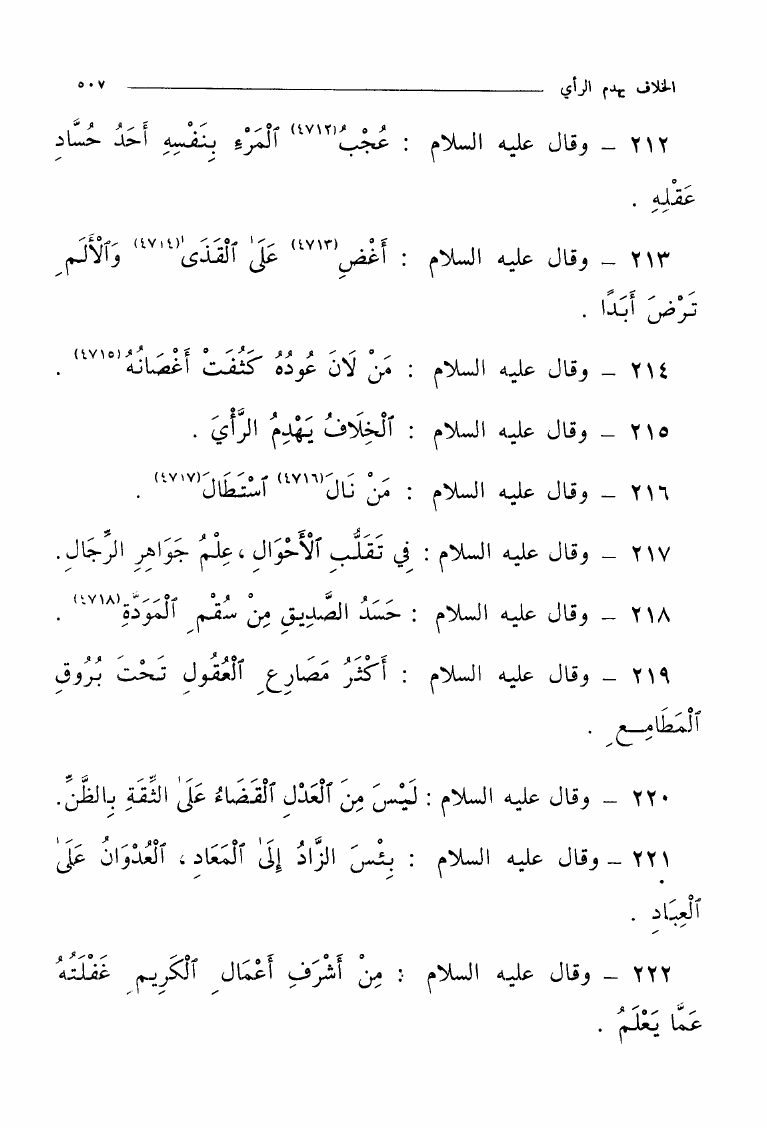 الخلاف يهدم الرأي ٥٠٧
٢١٢ – وقال عليه السلام : عُجْبُ(٤٧١٢) ٱلْمَرْءِ بِنَفْسِهِ أَحَدُ حُسَّادِ
عَقْلِهِ .
٢١٣ – وقال عليه السلام : أَغْضِ(٤٧١٣) عَلَىٰ ٱلْقَذَىٰ(٤٧١٤) وَٱلْأَلَمِ
تَرْضَ أَبَدًا .
٢١٤ – وقال عليه السلام : مَنْ لَانَ عُودُهُ كَثُفَتْ أَغْصَانُهُ(٤٧١٥) .
٢١٥ – وقال عليه السلام : ٱلْخِلَافُ يَهْدِمُ الرَّأْيَ .
٢١٦ – وقال عليه السلام : مَنْ نَالَ(٤٧١٦) ٱسْتَطَالَ(٤٧١٧) .
٢١٧ – وقال عليه السلام : فِي تَقَلُّبِ ٱلْأَحْوَالِ ، عِلْمُ جَوَاهِرِ الرِّجَالِ .
٢١٨ – وقال عليه السلام : حَسَدُ الصَّدِيقِ مِنْ سُقْمِ ٱلْمَوَدَّةِ(٤٧١٨) .
٢١٩ – وقال عليه السلام : أَكْثَرُ مَصَارِعِ ٱلْعُقُولِ تَحْتَ بُرُوقِ
ٱلْمَطَامِعِ .
٢٢٠ – وقال عليه السلام : لَيْسَ مِنَ ٱلْعَدْلِ ٱلْقَضَاءُ عَلَىٰ الثِّقَةِ بِالظَّنِّ .
٢٢١ – وقال عليه السلام : بِئْسَ الزَّادُ إِلَىٰ ٱلْمَعَادِ ، ٱلْعُدْوَانُ عَلَىٰ
ٱلْعِبَادِ .
٢٢٢ – وقال عليه السلام : مِنْ أَشْرَفِ أَعْمَالِ ٱلْكَرِيمِ غَفْلَتُهُ
عَمَّا يَعْلَمُ .